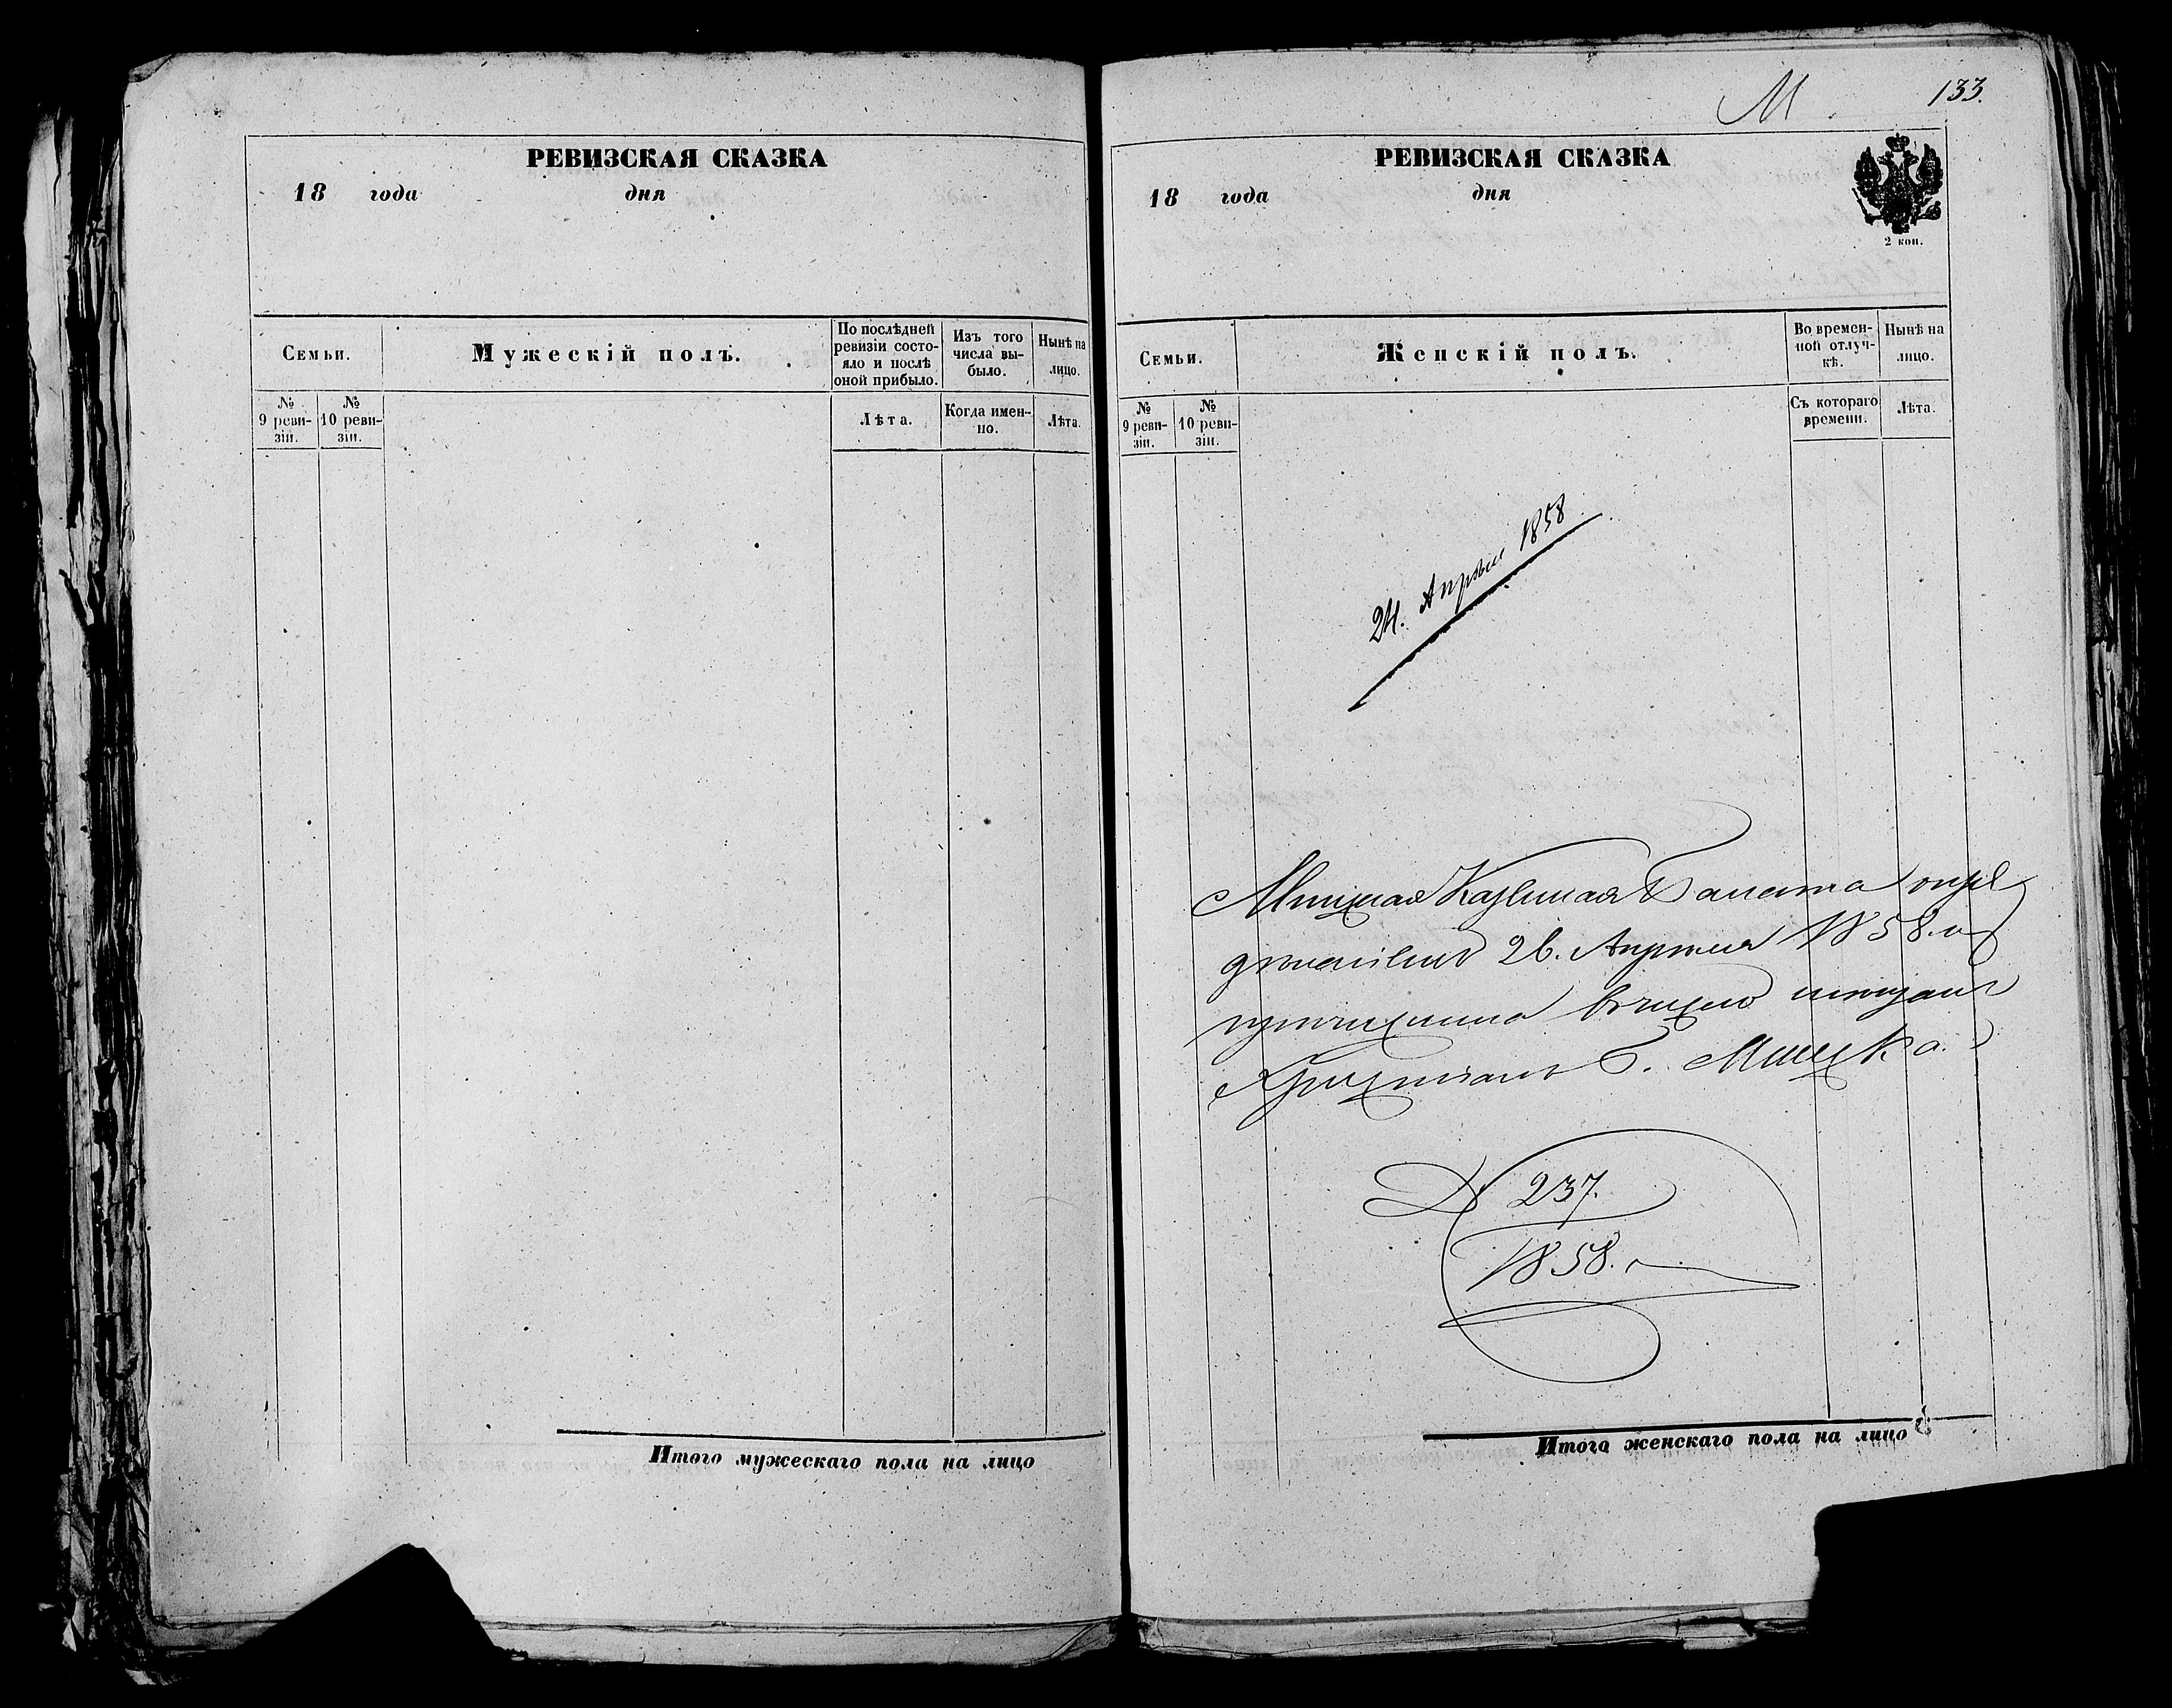 РЕВИЗСКАЯ СКАЗКА
18 года дня
Семьи.
Мужескій полъ.
По послѣдней ревизіи состо-
яло и послѣ
оной прибыло.
Изъ того
числа вы-
было.
Нынѣ на
лицо.
№
9 реви-
зіи.
№
10 реви-
зіи.
Лѣта.
Когда имен-
но.
Лѣта.
Итого мужескаго пола на лицо
М 133.
РЕВИЗСКАЯ СКАЗКА
18 года дня
2 коп.
Семьи.
Женскій полъ.
Во времен-
ной отлуч-
кѣ.
Нынѣ на
лицо.
№
9 реви-
зіи.
№
10 реви-
зіи.
Съ котораго
времени.
Лѣта.
24. Апрѣля 1858
Казенная Палата опре
дѣленіемъ 26. Апрѣля 1858. г
причислила въ число мѣщанъ
Христіанъ Г. Минска.
237.
1858.
Итого женскаго пола на лицо